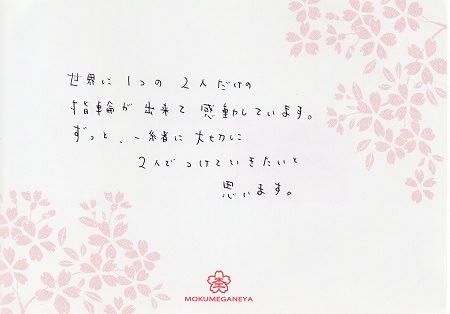 世界に1つの 2人だけの
指輪が 出来て 感動しています。
ずっと、一緒に 大切に
2人で つけていきたいと
思います。
MOKUMEGANEYA